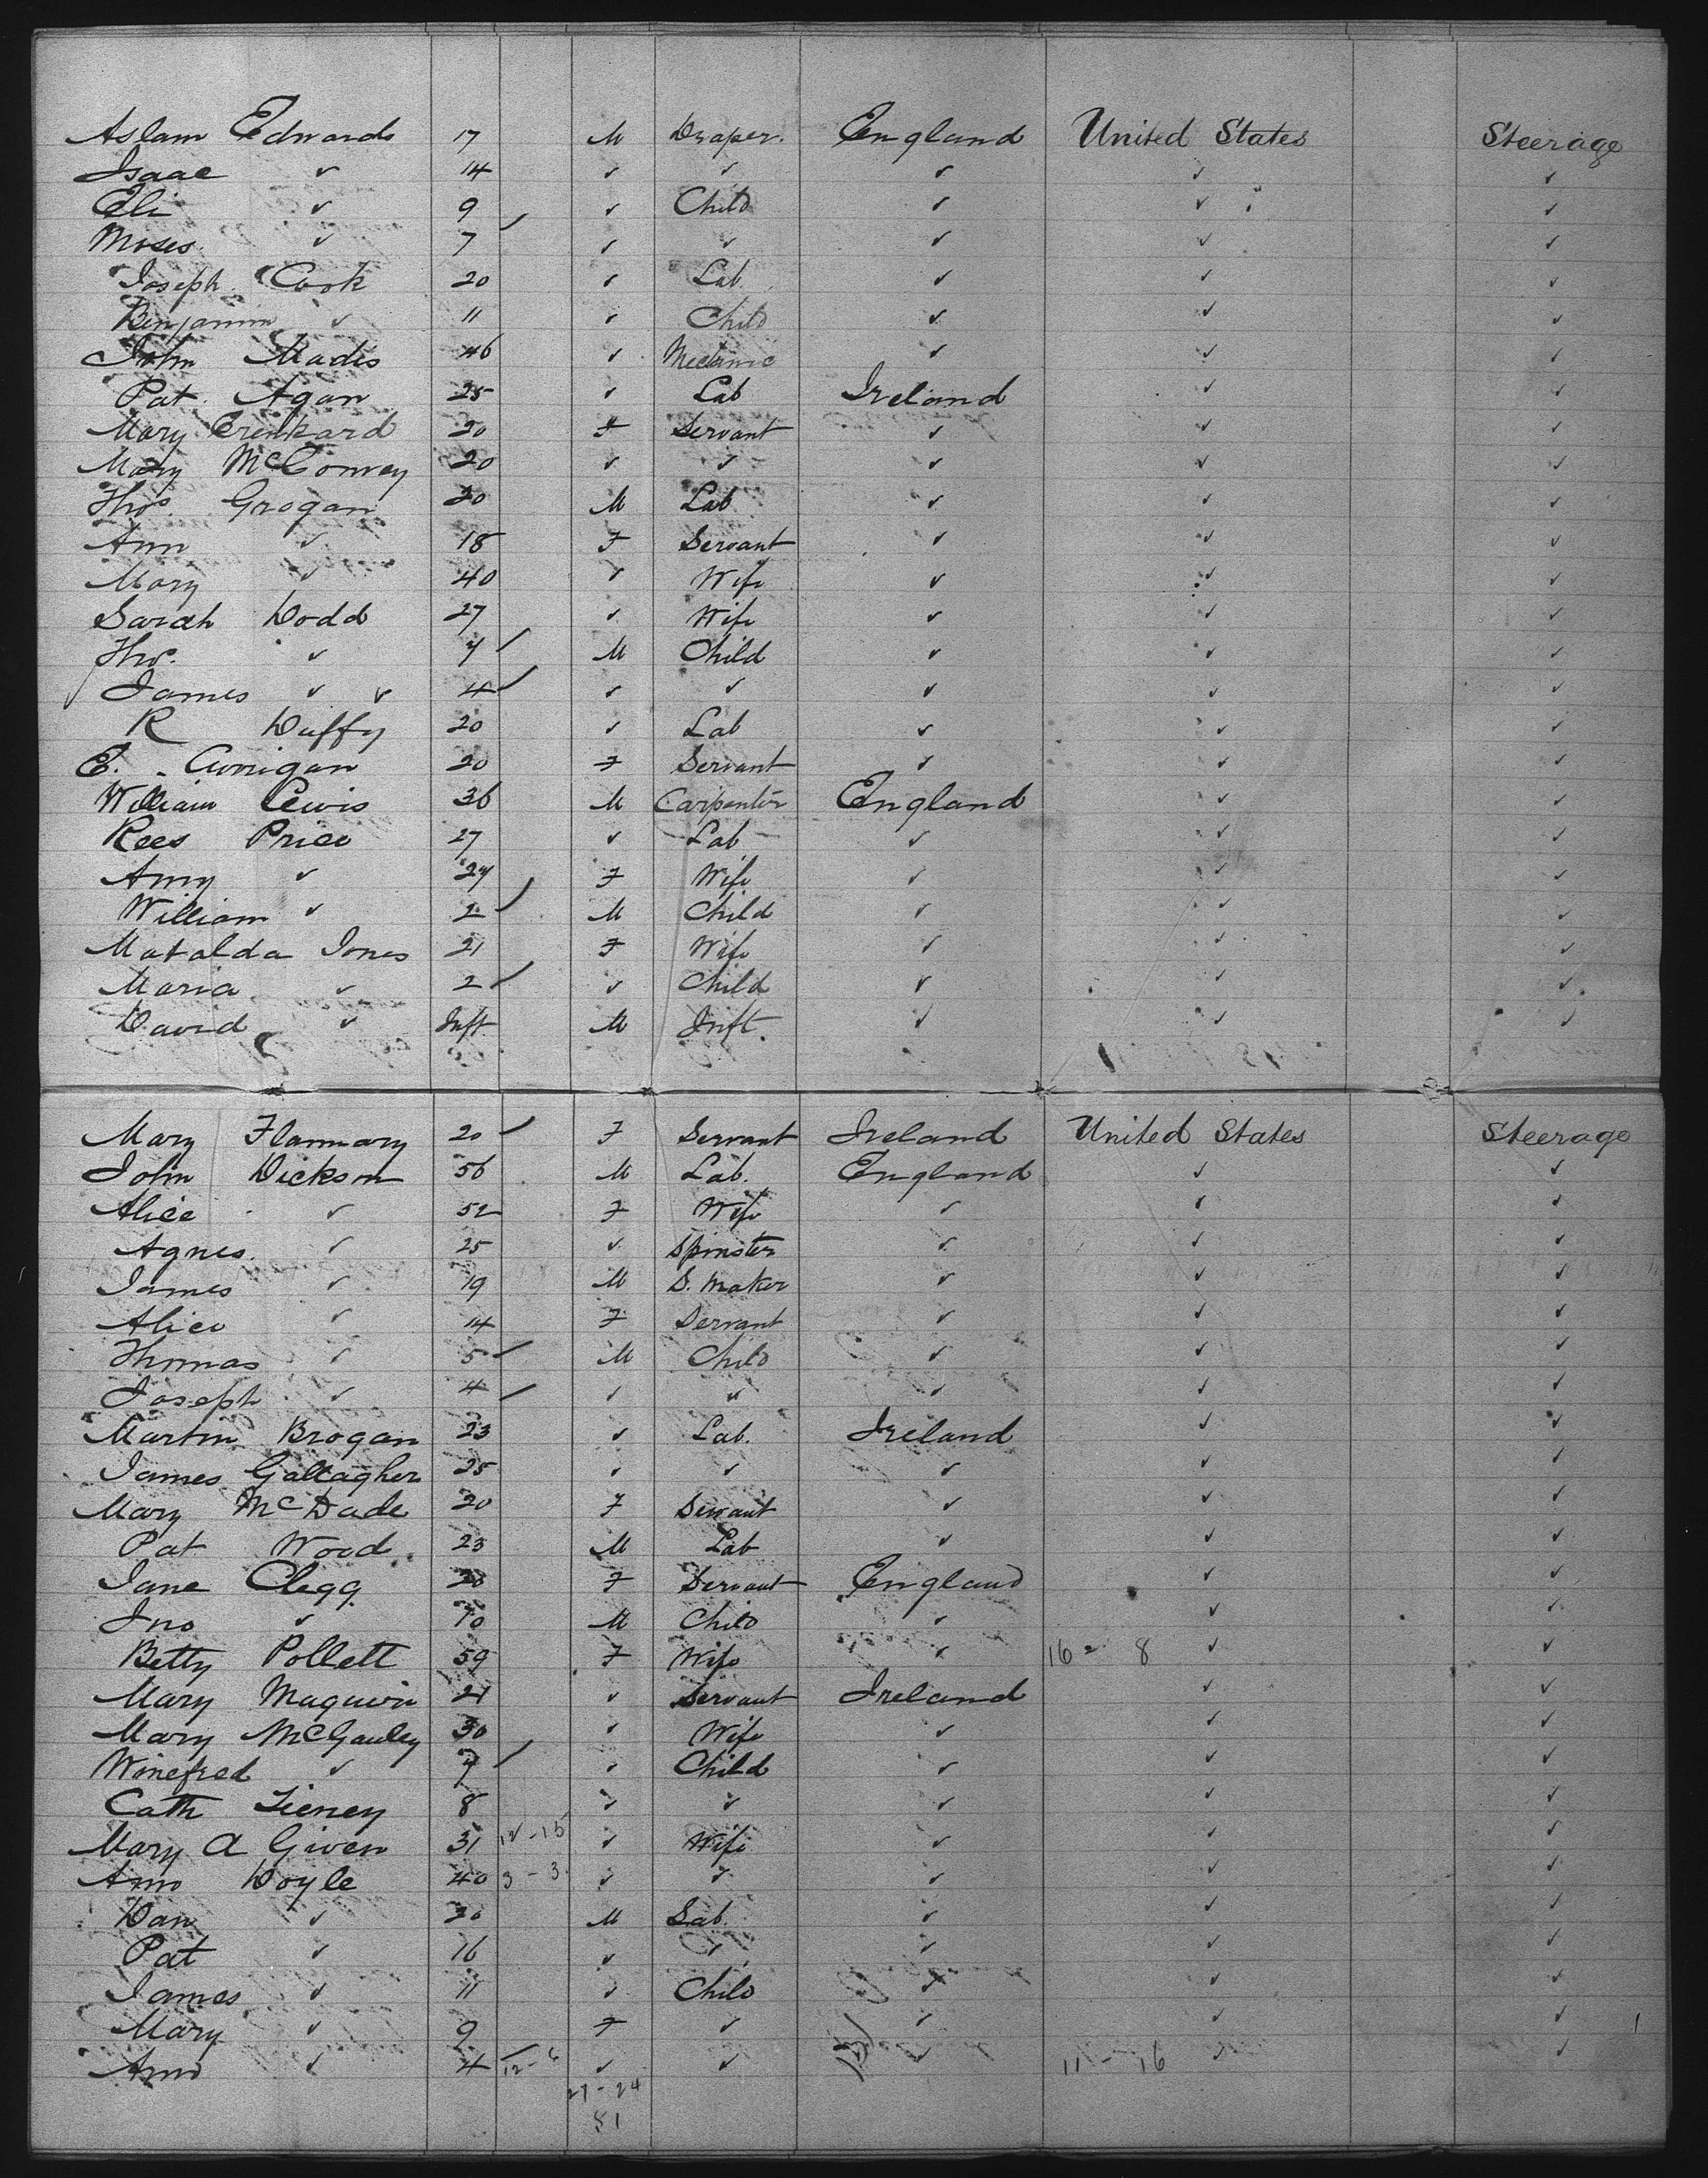 Aslam Edwards 17 M Draper. England United States Steerage
Isaac ✓ 14 ✓ ✓ ✓ ✓ ✓
Eli ✓ 9 ✓ Child ✓ ✓ ✓
Moses ✓ 7 ✓ ✓ ✓ ✓ ✓
Joseph Cook 20 ✓ Lab. ✓ ✓ ✓
Benjamin ✓ 11 ✓ Child ✓ ✓ ✓
John Madis 46 ✓ Mechanic ✓ ✓ ✓
Pat. Agan 25 ✓ Lab Ireland ✓ ✓
Mary 20 F Servant ✓ ✓ ✓
Mary McConvey 20 ✓ ✓ ✓ ✓ ✓
Thos. Grogan 20 M Lab ✓ ✓ ✓
Ann ✓ 18 F Servant ✓ ✓ ✓
Mary ✓ 40 ✓ Wife ✓ ✓ ✓
Sarah Dodd 27 ✓ Wife ✓ ✓ ✓
Tho. ✓ 7 M Child ✓ ✓ ✓
James ✓ ✓ 4 ✓ ✓ ✓ ✓ ✓
R Duffy 20 ✓ Lab ✓ ✓ ✓
E. Corrigan 20 F Servant ✓ ✓ ✓
William Lewis 36 M Carpenter England ✓ ✓
Rees Price 27 ✓ Lab ✓ ✓ ✓
Amy ✓ 24 F Wife ✓ ✓ ✓
William ✓ 2 M Child ✓ ✓ ✓
Matalda Jones 21 F Wife ✓ ✓ ✓
Maria ✓ 2 ✓ Child ✓ ✓ ✓
David ✓ Inft M Inft. ✓ ✓ ✓
Mary Flannary 20 F Servant Ireland United States Steerage
John Dickson 56 M Lab. England ✓ ✓
Alice ✓ 52 F Wife ✓ ✓ ✓
Agnes. ✓ 25 ✓ Spinster ✓ ✓ ✓
James ✓ 19 M S. Maker ✓ ✓ ✓
Alice ✓ 14 F Servant ✓ ✓ ✓
Thomas ✓ 5 M Child ✓ ✓ ✓
Joseph ✓ 4 ✓ ✓ ✓ ✓ ✓
Martin Brogan 23 ✓ Lab. Ireland ✓ ✓
James Gallagher 25 ✓ ✓ ✓ ✓ ✓
Mary McDade 20 F Servant ✓ ✓ ✓
Pat Wood 23 M Lab ✓ ✓ ✓
Jane Clegg 20 F Servant England ✓ ✓
Jno ✓ 10 M Child ✓ ✓ ✓
Betty Pollett 59 F Wife ✓ 16 - 8 ✓ ✓
Mary Maguwin 21 ✓ Servant Ireland ✓ ✓
Mary McGauley 30 ✓ Wife ✓ ✓ ✓
Winefred ✓ 7 ✓ Child ✓ ✓ ✓
Cath Lieney 8 ✓ ✓ ✓ ✓ ✓
Mary A Given 31 12-15 ✓ Wife ✓ ✓ ✓
Ann Doyle 40 3-3 ✓ ✓ ✓ ✓ ✓
Dan ✓ 20 M Lab. ✓ ✓ ✓
Pat ✓ 16 ✓ ✓ ✓ ✓ ✓
James ✓ 11 ✓ Child ✓ ✓ ✓
Mary ✓ 9 F ✓ ✓ ✓ ✓
Ann ✓ 4 12-6 ✓ ✓ ✓ 11 - 16 ✓ ✓
27-24
51